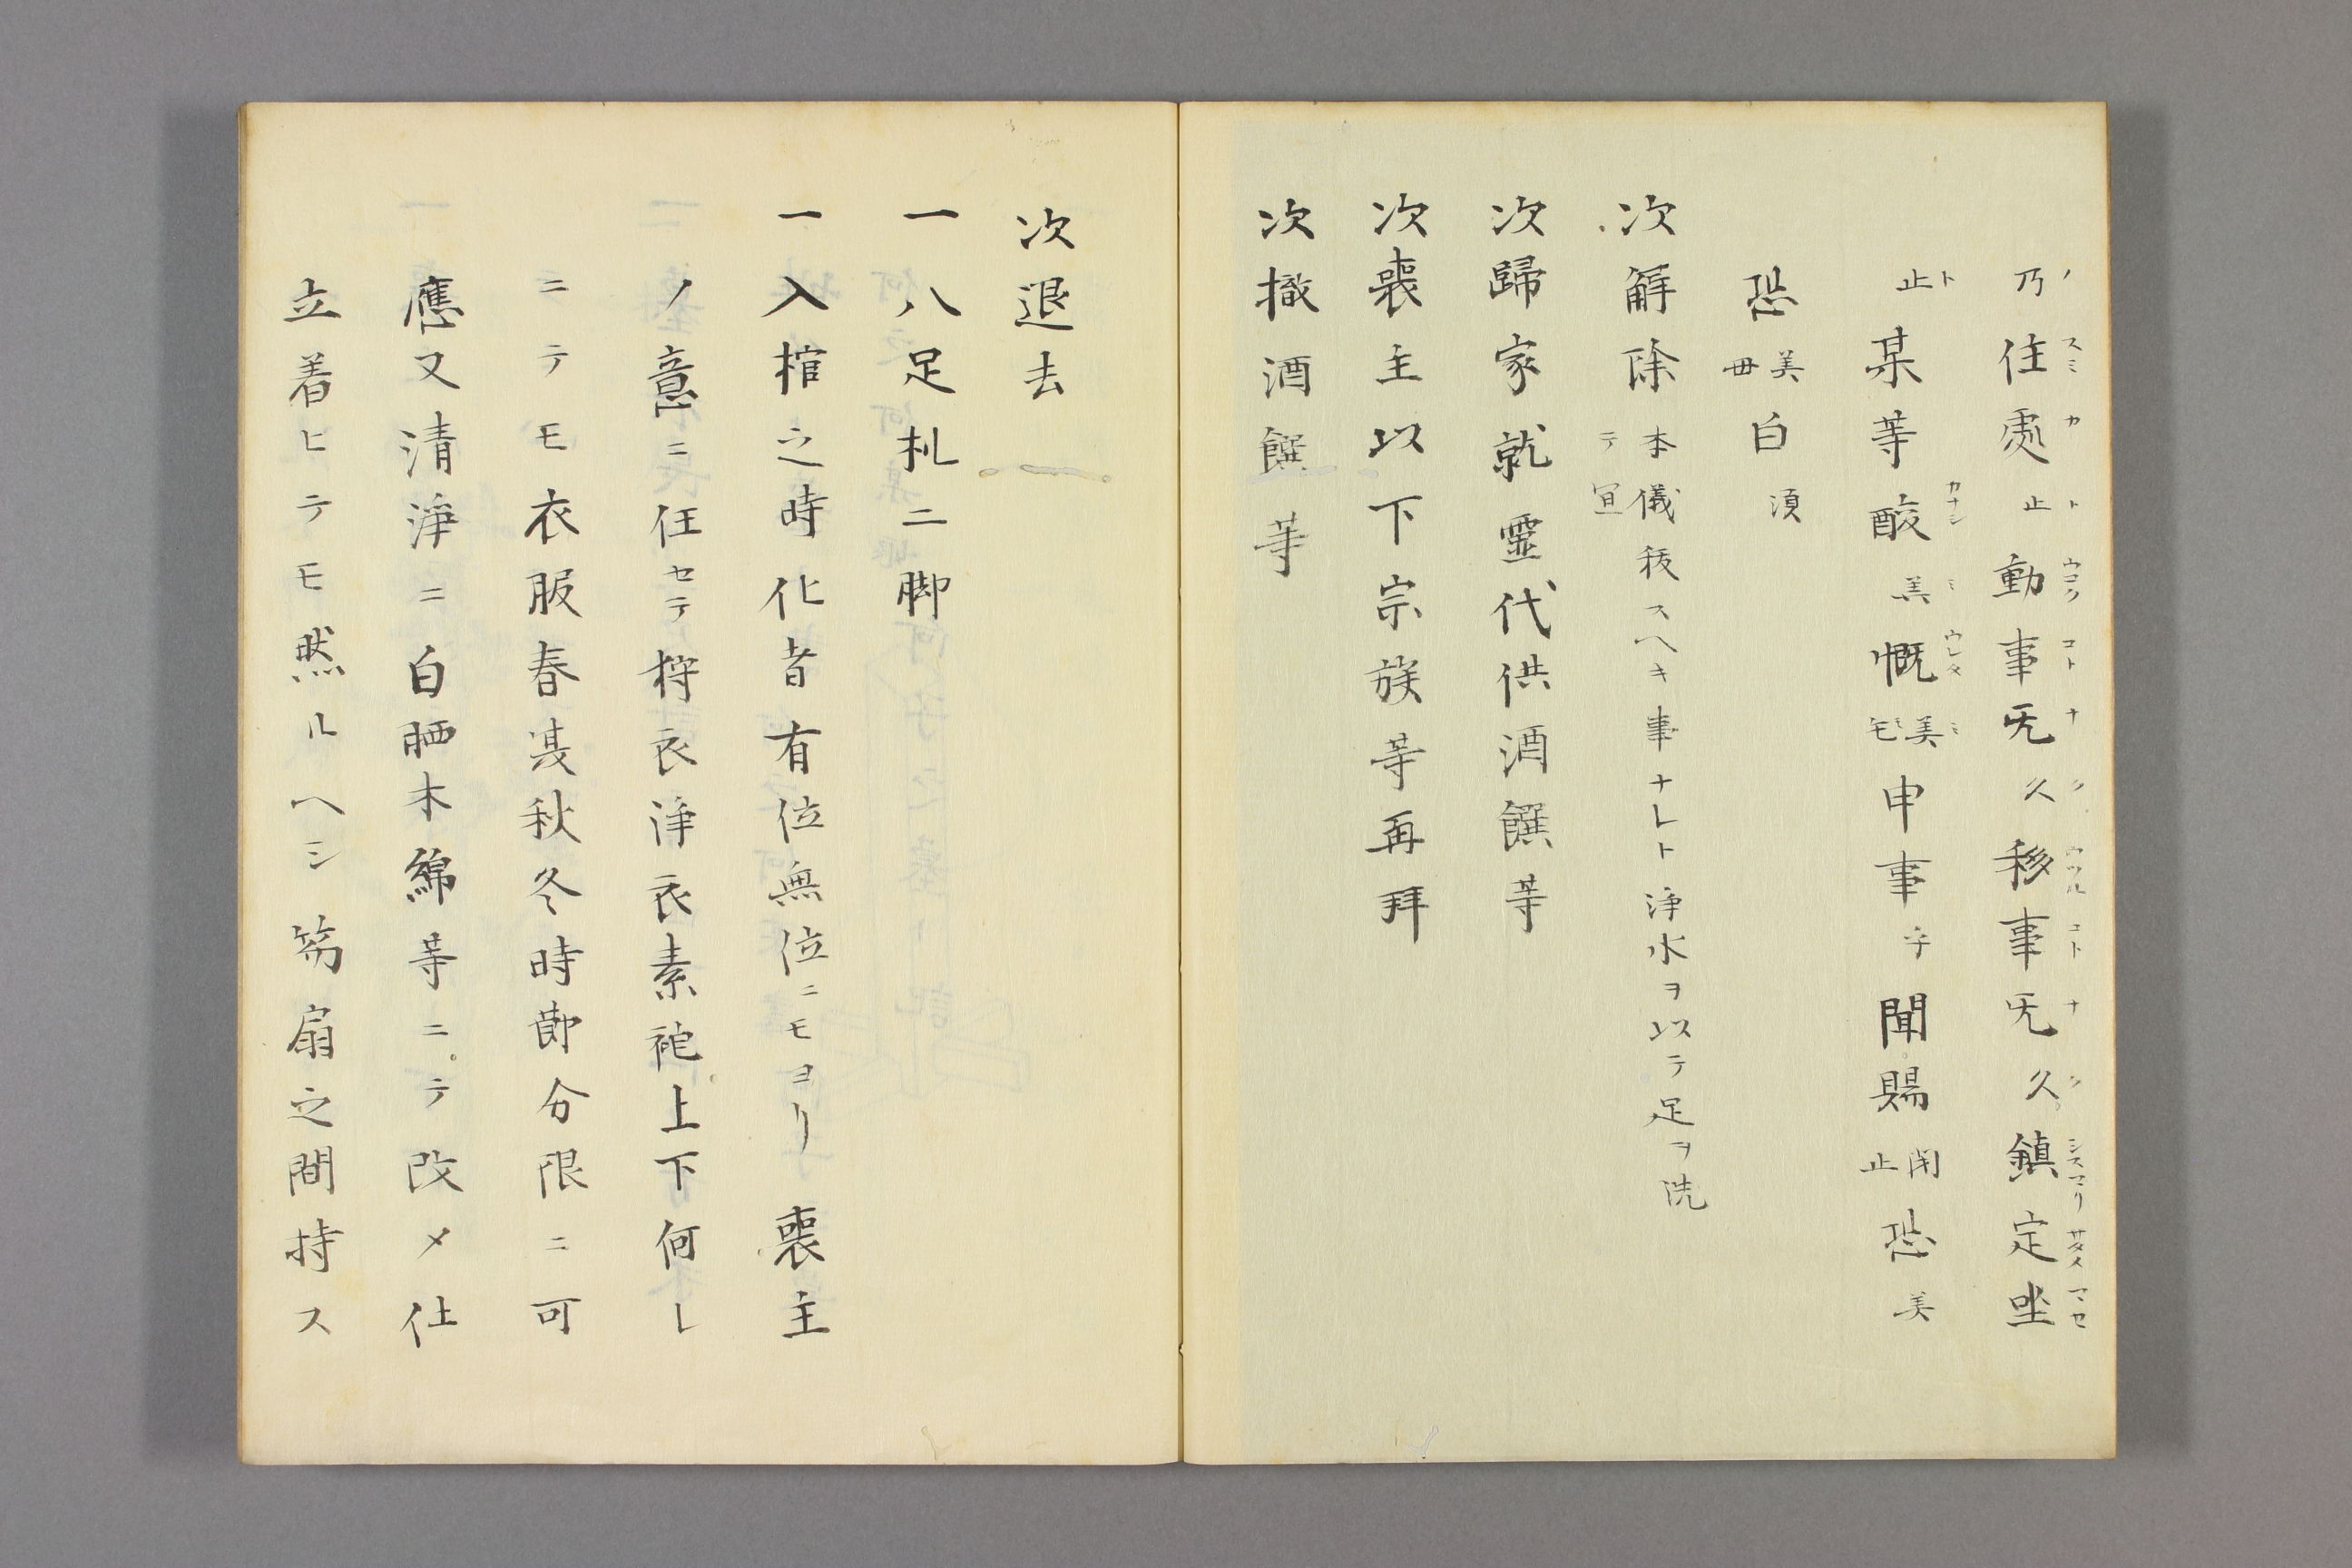 乃住處止動事旡久移事旡久鎮定坐
止某等酸美慨美モ申事乎聞賜閇止恐美
恐美毋白須
次解除本儀祓スヘキ事ナレト浄水ヲ以テ足ヲ洗テ宜
次歸家就靈代供酒饌等
次喪主以下宗族等再拜
次撤酒饌等
次退去
一八足札二脚
一入棺之時化者有位無位ニモヨリ喪主
ノ意ニ任セテ狩衣浄衣素袍上下何レ
ニテモ衣服春夏秋冬時節分限ニ可
應又清淨ニ白晒木綿等ニテ改メ仕
立着ヒテモ然ルヘシ笏扇之間持ス